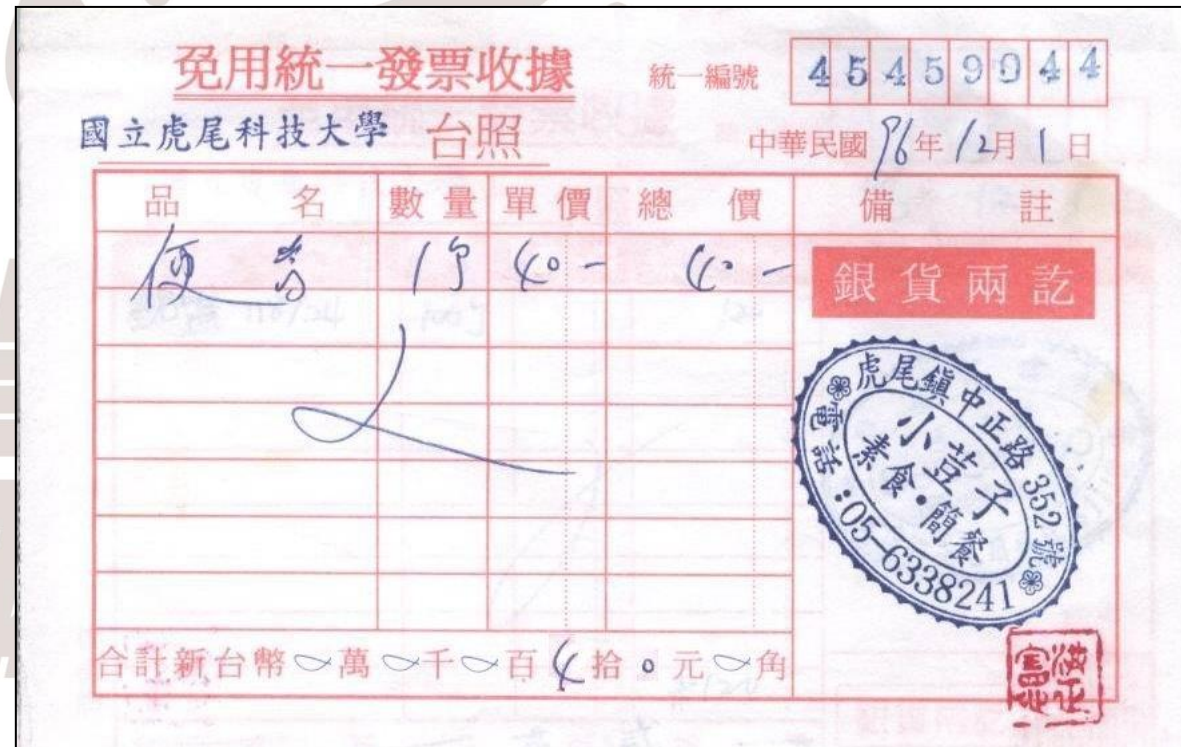 免用統一發票收據 統一編號 45459944
國立虎尾科技大學 台照 中華民國 96年 12月 1日
品名 數量 單價 總價 備註
便當 1 40- 40-
銀貨兩訖
虎尾鎮中正路352號
小荳子
素食・簡餐
電話:05-6338241
合計新台幣 0萬 0千 0百 4拾 0元 0角